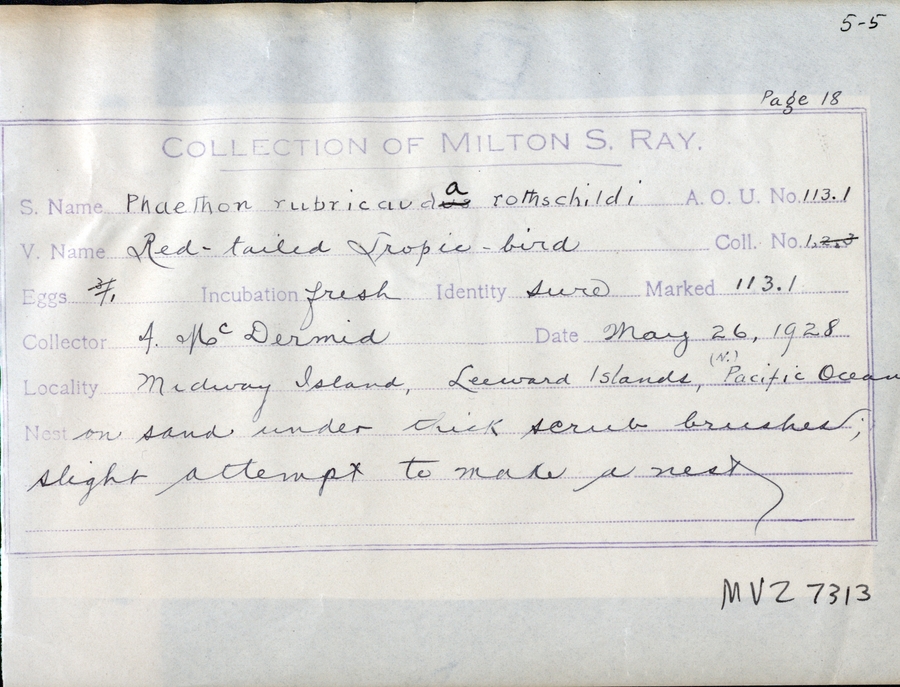 5-5
Page 18
COLLECTION OF MILTON S. RAY.
S. Name Phaethon rubricauda rothschildi A. O. U. No. 113.1
V. Name Red-tailed Tropic-bird Coll. No. 1,2,3
Eggs Incubation fresh Identity sure Marked 113.1
Collector Mc Dermid Date May 26, 1928
Locality Midway Island, Leeward Islands, (N.) Pacific Ocean
Nest on sand under thick scrub brushes;
slight attempt to make a nest
MVZ 7313